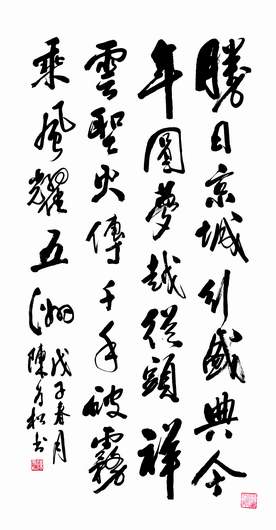 勝日京城引盛典今
年圓夢越從頭祥
雲聖火傳千手破霧
乘風耀五洲
戊子春月
陳方松书